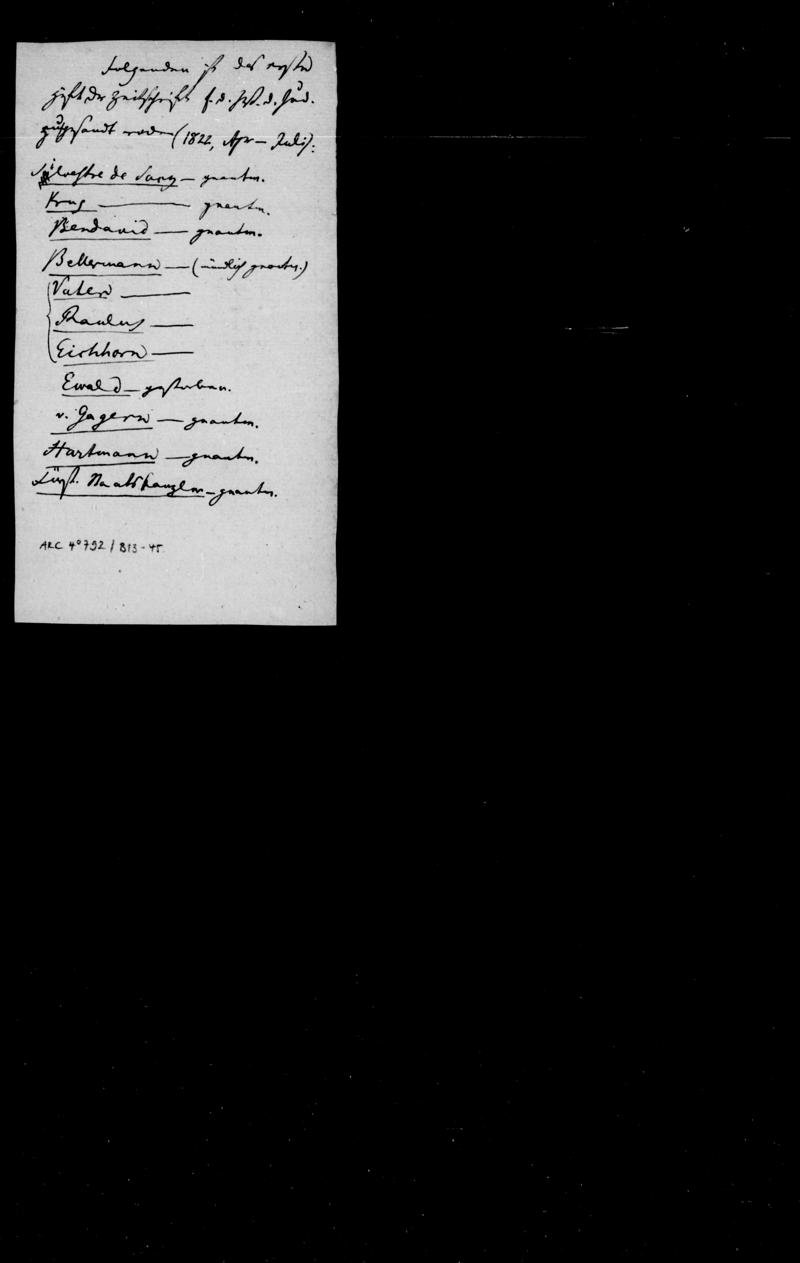 Folgenden ist das erste
Heft der Zeitschrift f. d. Wss. d. Jud.
zugesandt worden (1822, Apr — Juli):
Silvestre de Sacy — geantw.
Krug — geantw.
Bendavid — geantw.
Bellermann — (mündlich geantw.)
Vater —
Paulus —
Eichhorn —
Ewald — gestorben.
v. Gagern — geantw.
Hartmann — geantw.
Fürst. Staatskanzler — geantw.
ARC 4° 792 / B13 - 45